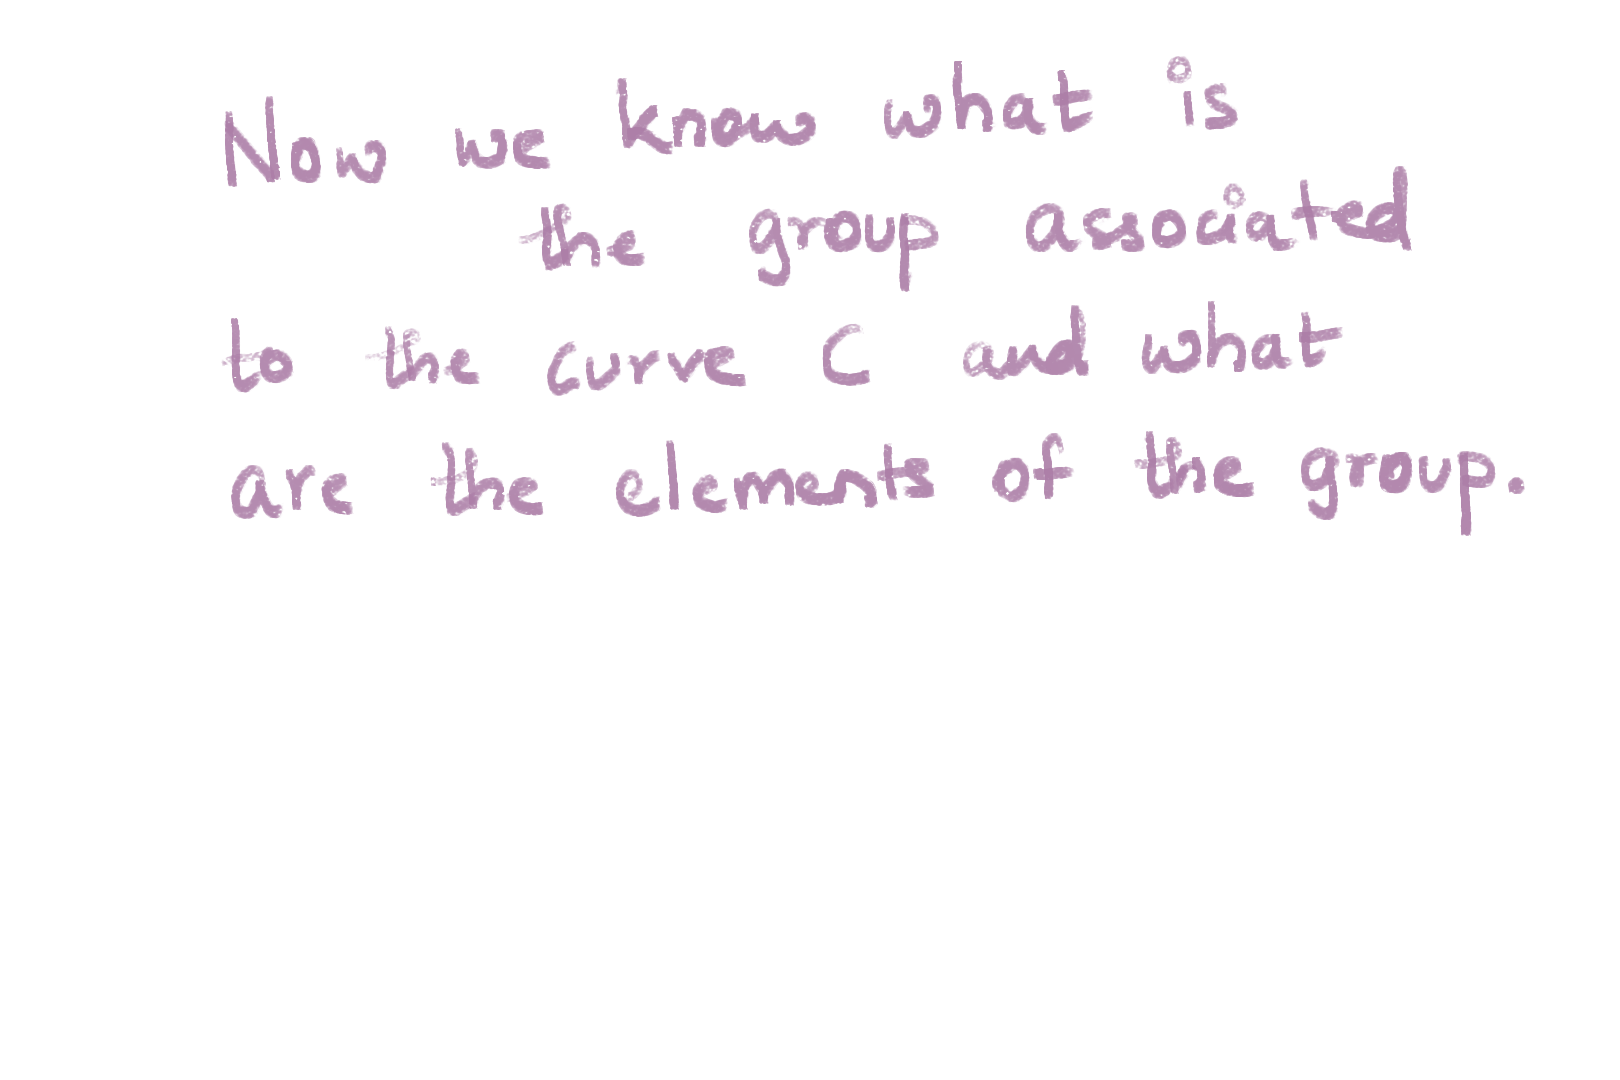 Now we know what is
the group associated
to the curve C and what
are the elements of the group.